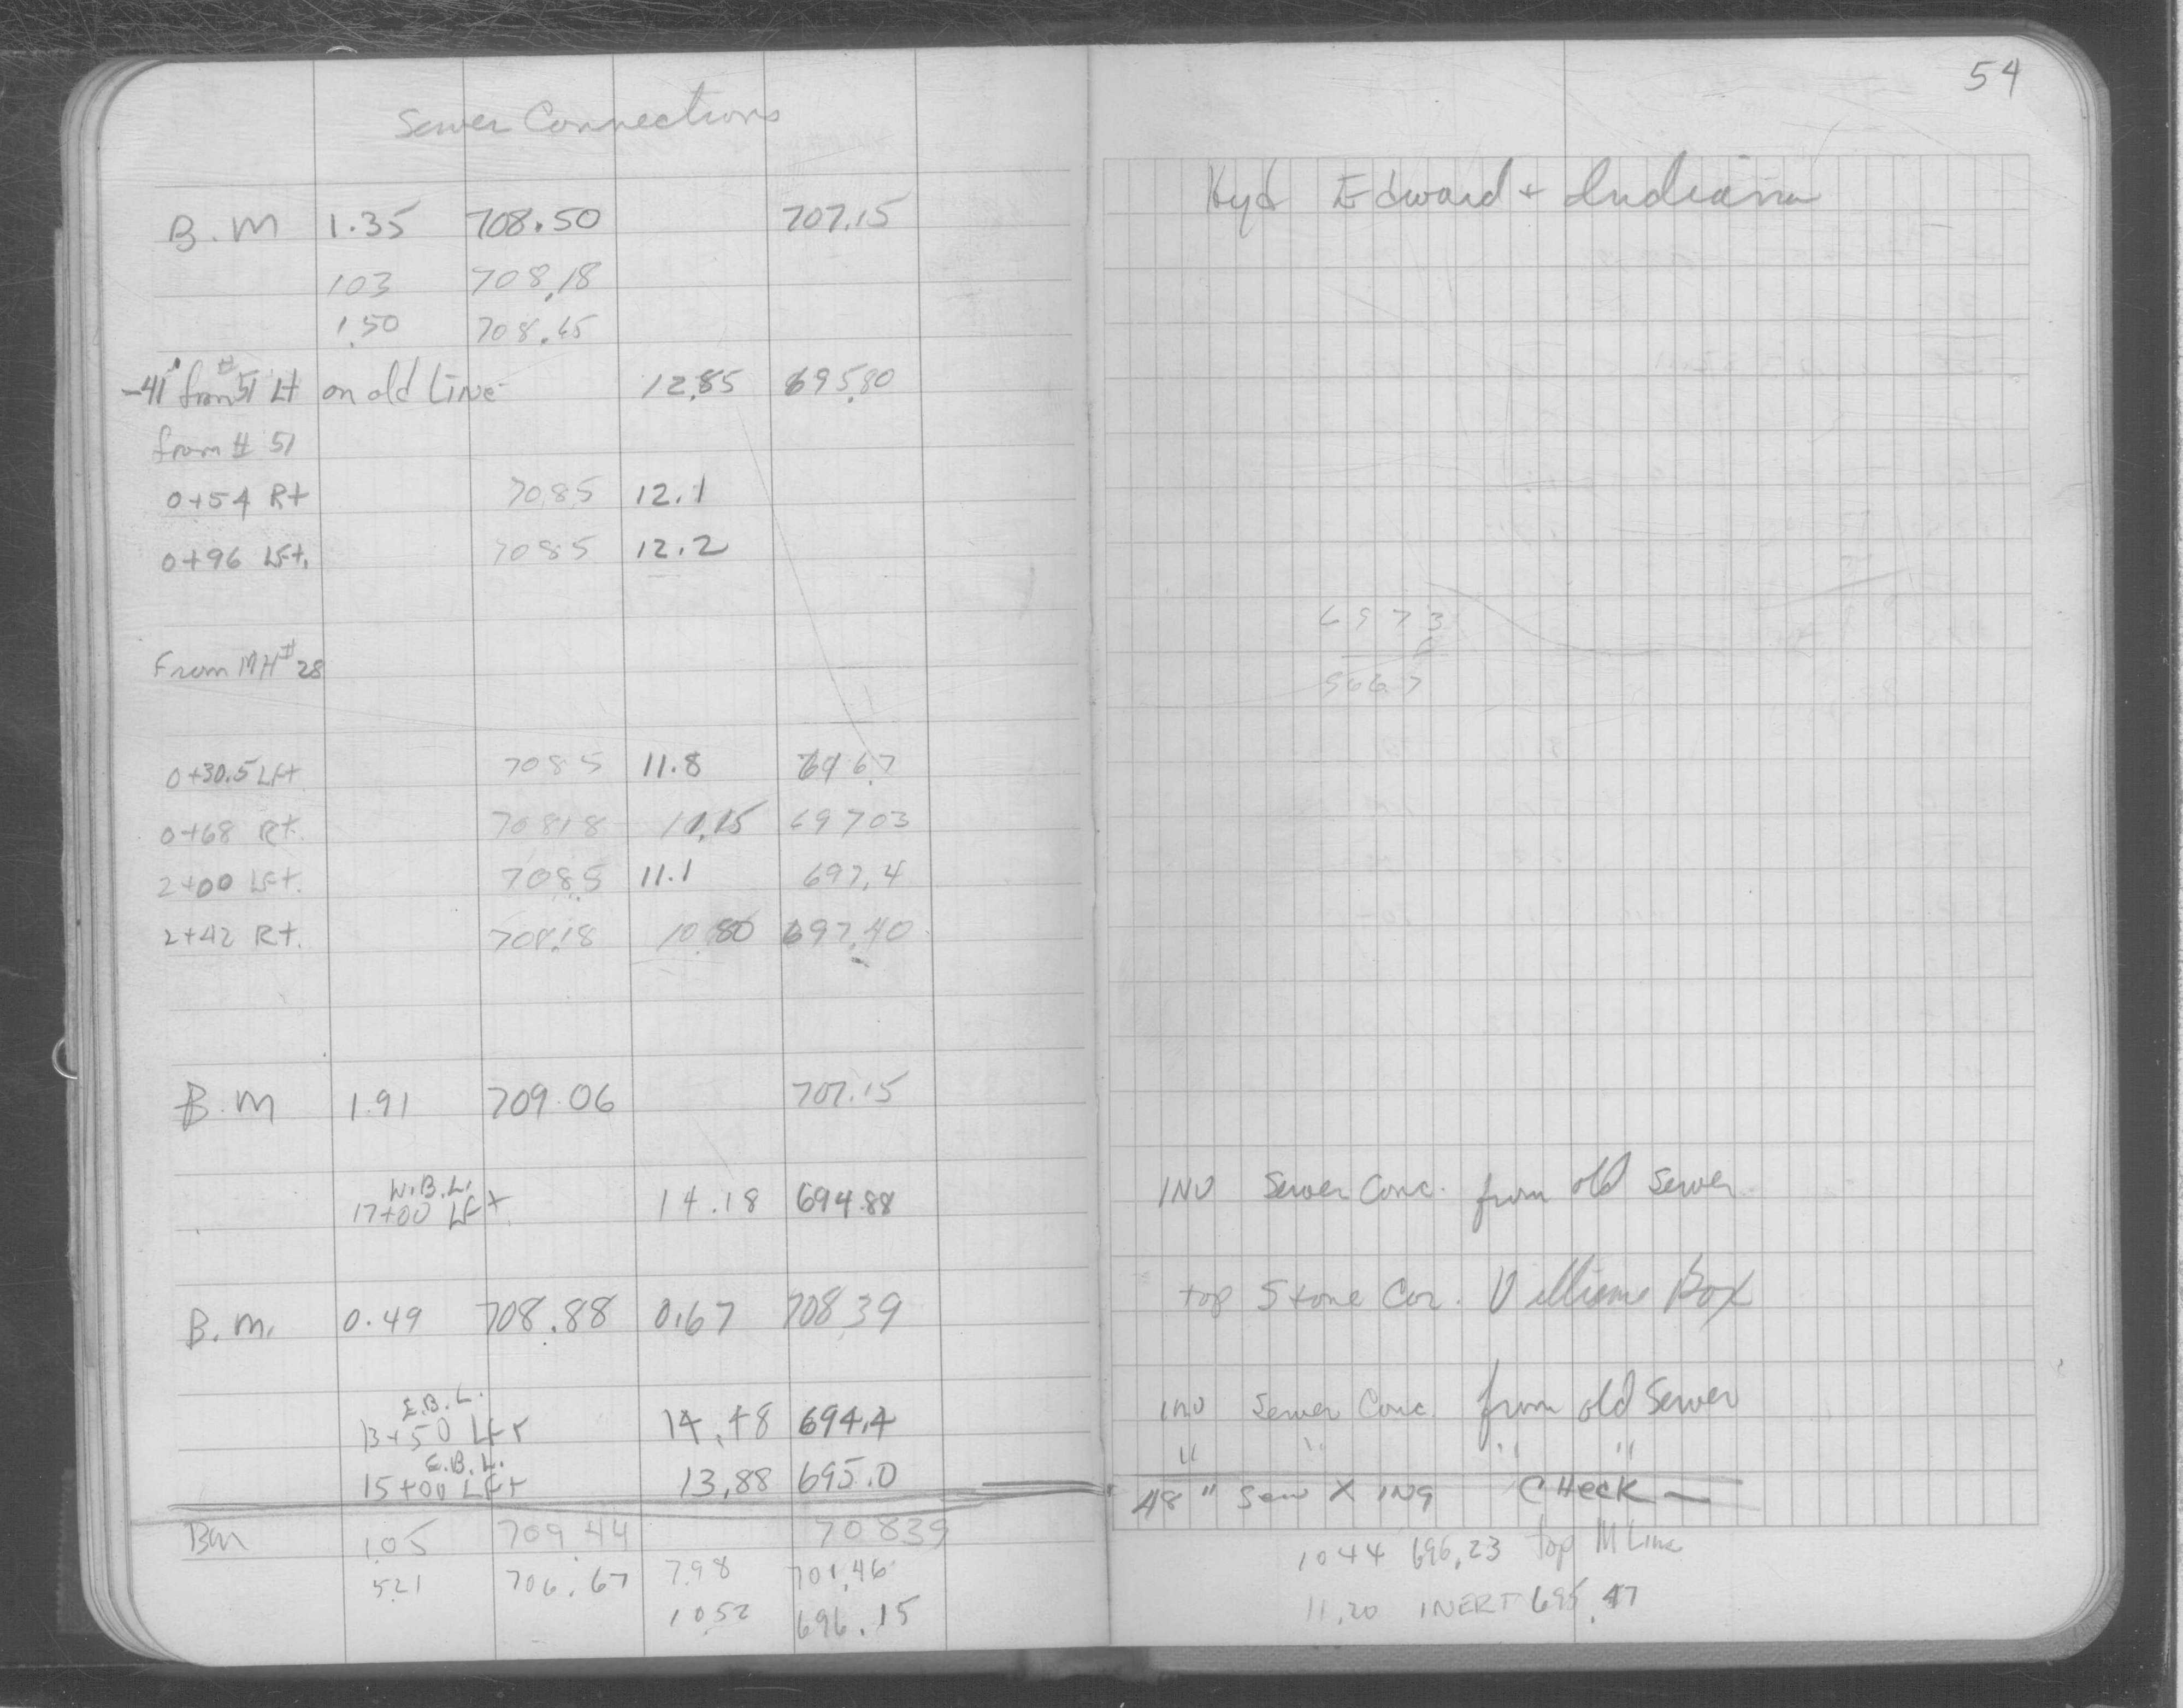 54
Sewer Connections
B.M 1.35 708.50 707.15 Hyd Edward + Indiana
1.03 708.18
1.50 708.65
-41' from #51 Lt on old Line 12.85 695.80
from # 51
0+54 Rt 708.5 12.1
0+96 Lft. 708.5 12.2
6973
From MH #28
0+30.5 Lft 708.5 11.8 696.7
0+68 Rt. 708.18 11.15 697.03
2+00 Lft. 708.5 11.1 697.4
2+42 Rt. 708.18 10.80 697.40
B.M 1.91 709.06 707.15
W.B.L.
17+00 Lft. 14.18 694.88 INV Sewer Conc. from old Sewer
B.M. 0.49 708.88 0.67 708.39 top Stone Cor. Williams Box
E.B.L.
13+50 Lft 14.48 694.4 INV Sewer Conc. from old Sewer
E.B.L. " " " "
15+00 Lft 13.88 695.0 48" Sew X ING CHECK —
BM 1.05 709.44 708.39
5.21 706.67 7.98 701.46 1044 696.23 top M Line
10.52 696.15 11.20 INERT 695.47